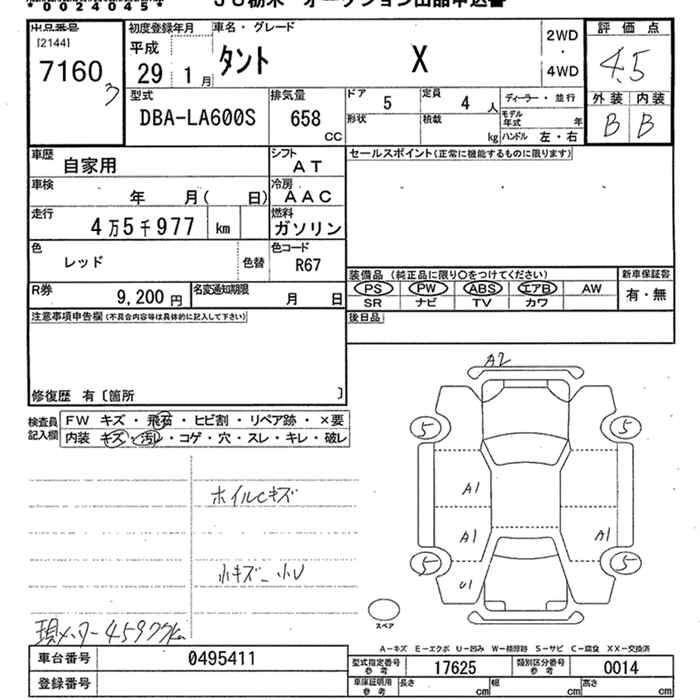 *0024045*
JU栃木 オークション出品申込書
出品番号
[2144]
7160
3
初度登録年月
平成
29 1月
車名・グレード
タント X
2WD
・
4WD
評価点
4.5
外装 内装
B B
型式
DBA-LA600S
排気量
658
CC
ドア 5
定員 4 人
形状
積載 kg
ディーラー・並行
モデル年式 年
ハンドル 左・右
車歴
自家用
シフト
AT
車検
年 月( 日)
冷房
AAC
走行
4万5千977 km
燃料
ガソリン
色
レッド
色替
色コード
R67
R券
9,200 円
名変通知期限
月 日
セールスポイント(正常に機能するものに限ります)
装備品 (純正品に限り○をつけてください)
PS PW ABS エアB AW
SR ナビ TV カワ
新車保証書
有・無
後日品
注意事項申告欄(不具合内容等は具体的に記入して下さい)
修復歴 有〔箇所 〕
検査員
記入欄
FW キズ・飛石・ヒビ割・リペア跡・×要
内装 キズ・汚レ・コゲ・穴・スレ・キレ・破レ
ホイルCキズ
小キズ_小U
現メーター45977km
A2
5 5
A1
A1 A1
5 5
U1
スペア
A-キズ E-エクボ U-凹み W-補修跡 S-サビ C-腐食 XX-交換済
車台番号 0495411
登録番号
型式指定番号
参考
17625
類別区分番号
参考
0014
車庫証明用
参考
長さ cm
幅 cm
高さ cm